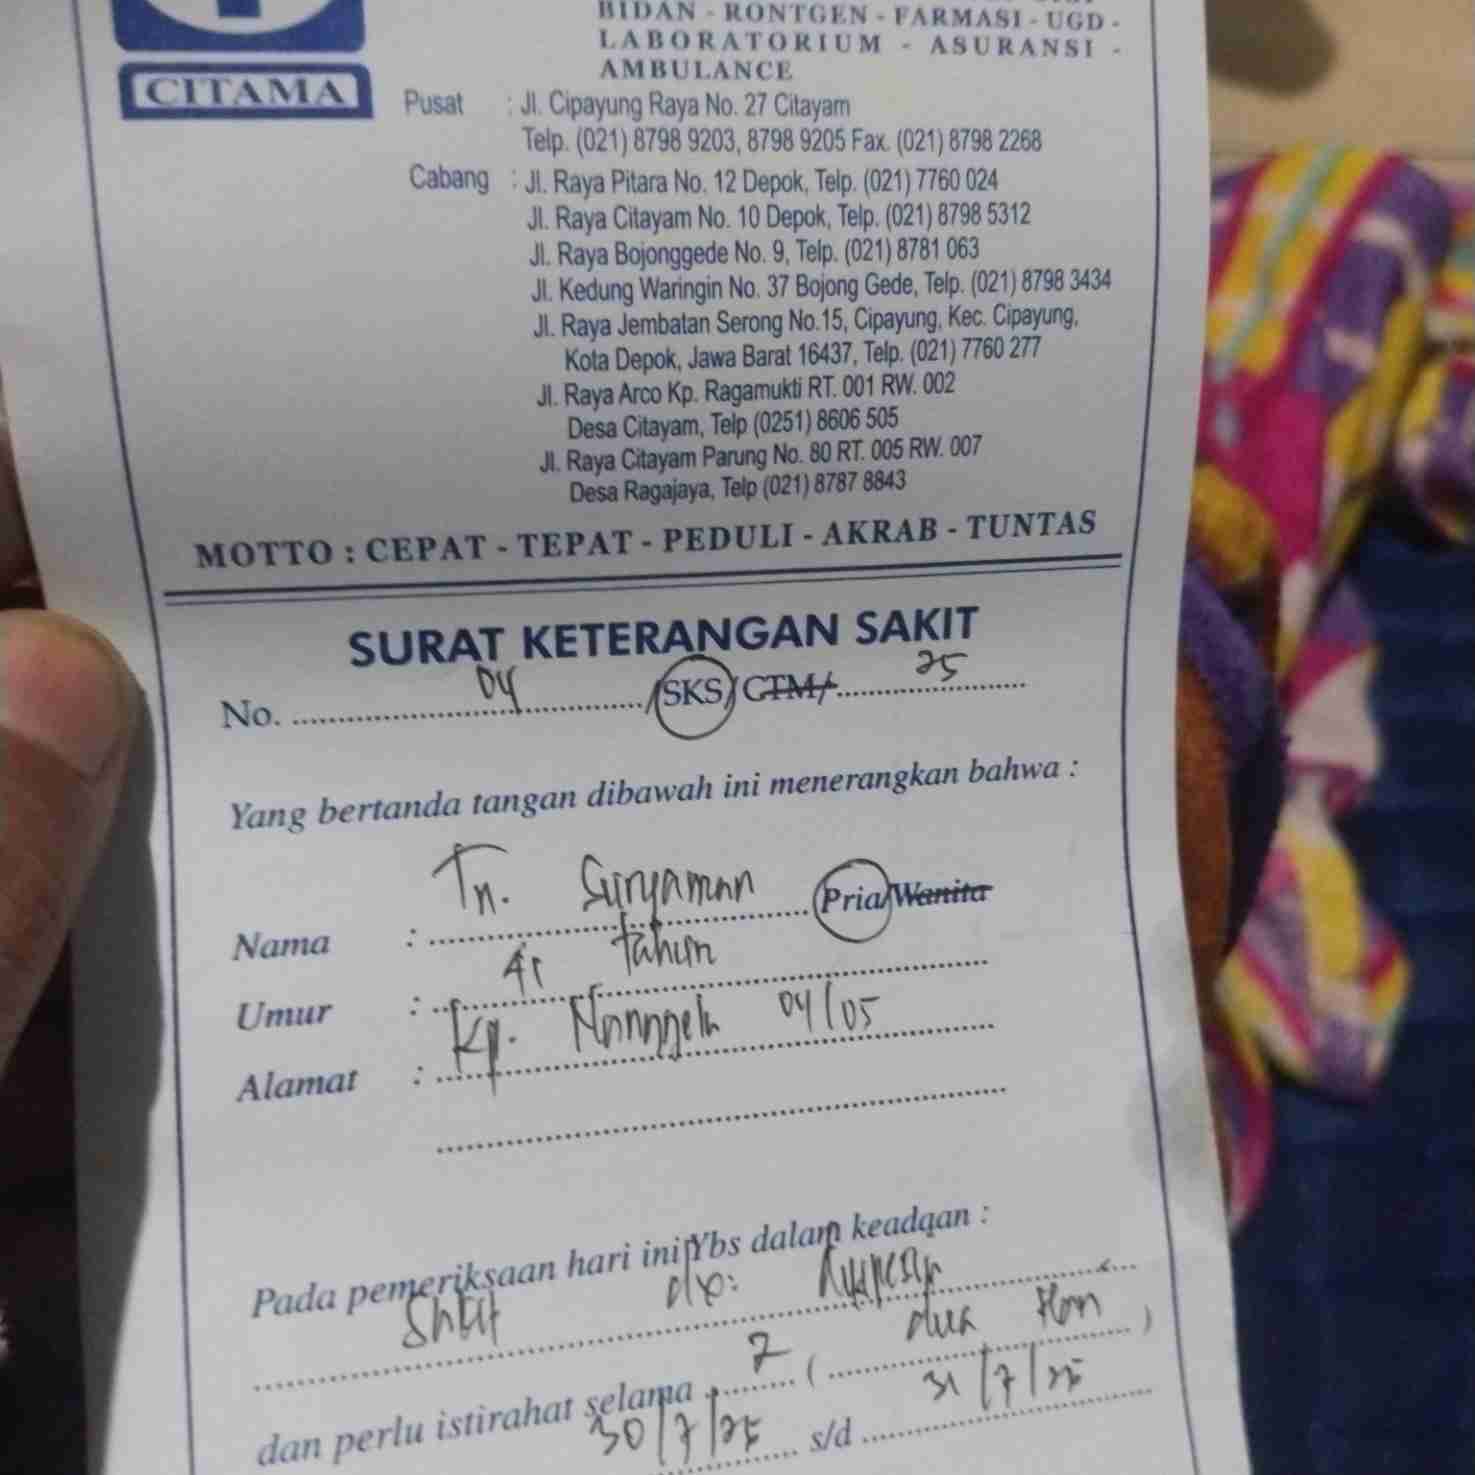 BIDAN - RONTGEN - FARMASI - UGD -
LABORATORIUM - ASURANSI -
AMBULANCE
CITAMA
Pusat : Jl. Cipayung Raya No. 27 Citayam
Telp. (021) 8798 9203, 8798 9205 Fax. (021) 8798 2268
Cabang : Jl. Raya Pitara No. 12 Depok, Telp. (021) 7760 024
Jl. Raya Citayam No. 10 Depok, Telp. (021) 8798 5312
Jl. Raya Bojonggede No. 9, Telp. (021) 8781 063
Jl. Kedung Waringin No. 37 Bojong Gede, Telp. (021) 8798 3434
Jl. Raya Jembatan Serong No.15, Cipayung, Kec. Cipayung,
Kota Depok, Jawa Barat 16437, Telp. (021) 7760 277
Jl. Raya Arco Kp. Ragamukti RT. 001 RW. 002
Desa Citayam, Telp (0251) 8606 505
Jl. Raya Citayam Parung No. 80 RT. 005 RW. 007
Desa Ragajaya, Telp (021) 8787 8843
MOTTO : CEPAT - TEPAT - PEDULI - AKRAB - TUNTAS
SURAT KETERANGAN SAKIT
No. 04 /SKS/ CTM/ 25
Yang bertanda tangan dibawah ini menerangkan bahwa :
Nama : Tn. Suryaman Pria/Wanita
Umur : 41 tahun
Alamat : Kp. 04/05
Pada pemeriksaan hari ini Ybs dalam keadaan :
Sakit dx:
dan perlu istirahat selama 2 ( dua )
30/7/25 s/d 31/7/25